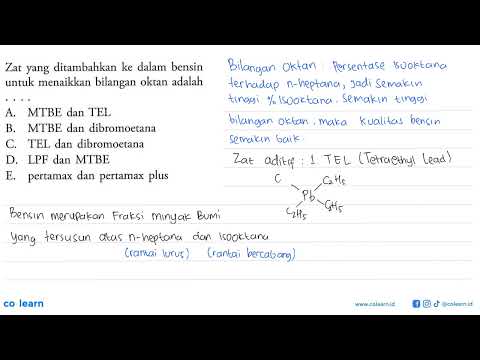 Zat yang ditambahkan ke dalam bensin
untuk menaikkan bilangan oktan adalah
. . . .
A. MTBE dan TEL
B. MTBE dan dibromoetana
C. TEL dan dibromoetana
D. LPF dan MTBE
E. pertamax dan pertamax plus
Bensin merupakan Fraksi minyak Bumi
yang tersusun atas n-heptana dan isooktana
(rantai lurus) (rantai bercabang)
Bilangan Oktan : Persentase isooktana
terhadap n-heptana, jadi semakin
tinggi % isooktana. Semakin tinggi
bilangan oktan, maka kualitas bensin
semakin baik.
Zat aditif : 1. TEL (Tetraethyl Lead)
C C2H5
Pb
C2H5 C2H5
co learn
www.colearn.id @colearn.id